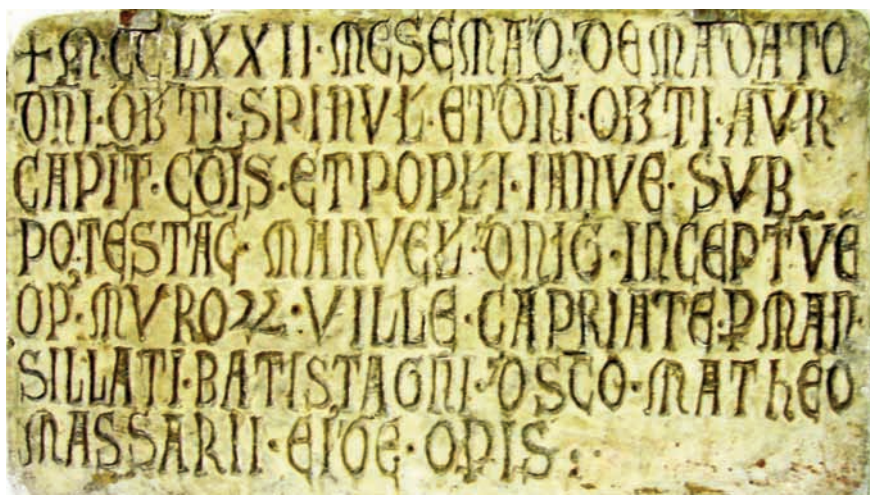 + M·CCLXXII· MESE MADO· DE MADATO
DNI·OBTI·SPINUL·ET DNI·OBTI·AUR
CAPIT·COIS·ET POPLI·IANUE· SUB
POTESTAC· MANUEL· DNIG·INCEPTUE
OP'· MURO2L· VILLE· CAPRIATE· P MAN·
SILLATI·BATISTAGNI· D SCO· MATHEO
MASSARII· EIDE· OPIS·